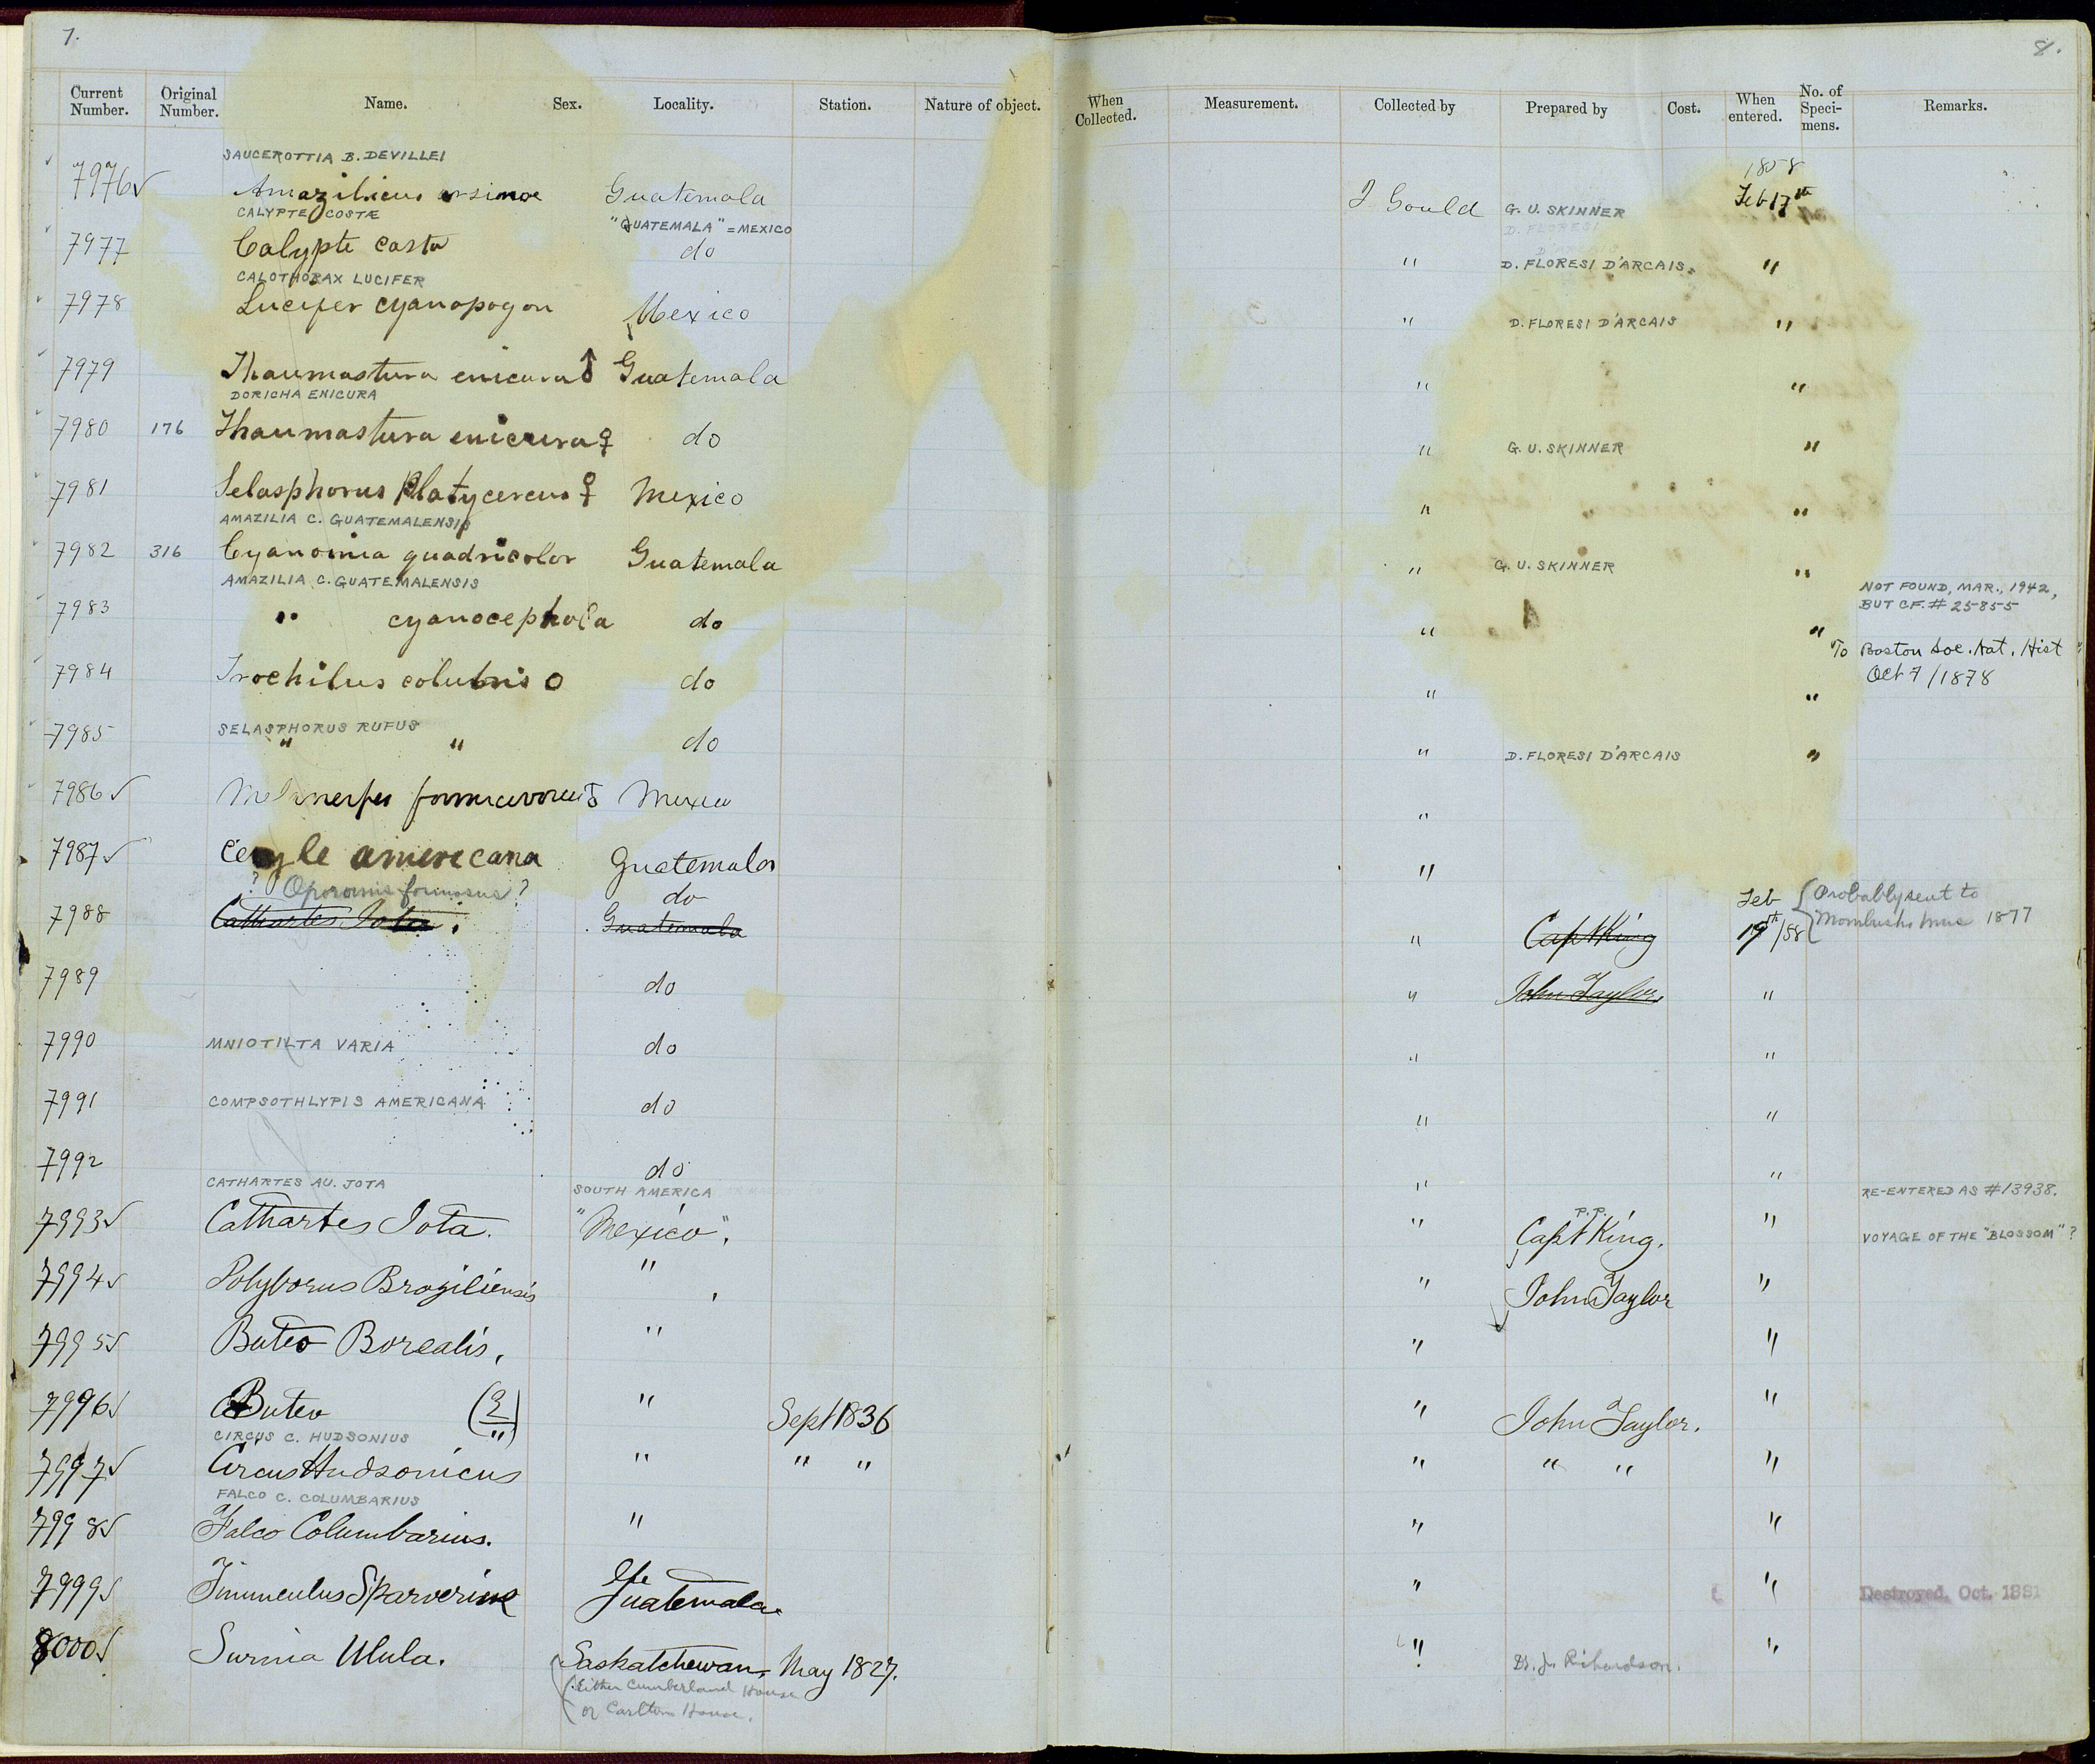 7.
8.
Current Number. Original Number. Name. Sex. Locality. Station. Nature of object. When Collected. Measurement. Collected by Prepared by Cost. When entered. No. of Speci-mens. Remarks.
SAUCEROTTIA B. DEVILLEI
1858
7976✓ Amazilicus arsinoe Guatemala J Gould G. U. SKINNER Feb 17th
CALYPTE COSTÆ "GUATEMALA" = MEXICO D. FLORESI
7977 Calypte casta do " D. FLORESI D'ARCAIS "
CALOTHORAX LUCIFER
7978 Lucifer cyanopogon Mexico " D. FLORESI D'ARCAIS "
7979 Thaumastura enicura ♂ Guatemala " "
DORICHA ENICURA
7980 176 Thaumastura enicura ♀ do " G. U. SKINNER "
7981 Selasphorus Platycercus ♀ Mexico " "
AMAZILIA C. GUATEMALENSIS
7982 316 Cyanomia quadricolor Guatemala " G. U. SKINNER "
AMAZILIA C. GUATEMALENSIS NOT FOUND, MAR., 1942,
BUT CF. # 25855
7983 " cyanocephala do " "
To Boston Soc. Nat. Hist
7984 Trochilus colubris O do " " Oct 7/1878
SELASPHORUS RUFUS
7985 " " do " D. FLORESI D'ARCAIS "
7986✓ Melanerpes formicivorus ♂ Mexico "
7987✓ Ceryle americana Guatemala "
? Oporornis formosus? do Feb Probably sent to
7988 Cathartes Iota. Guatemala " Capt King 19th/58 Mus 1877
7989 do " John Taylor. "
7990 MNIOTILTA VARIA do " "
7991 COMPSOTHLYPIS AMERICANA do " "
7992 do " "
CATHARTES AU. JOTA SOUTH AMERICA RE-ENTERED AS #13938.
P.P.
7993✓ Cathartes Iota. "Mexico". " Capt King. " VOYAGE OF THE "BLOSSOM"?
7994✓ Polyborus Braziliensis " " John Taylor "
7995✓ Buteo Borealis. " " "
7996✓ Buteo (? ") " Sept 1836 " John Taylor. "
CIRCUS C. HUDSONIUS
7997✓ Circus Hudsonicus " " " " " " "
FALCO C. COLUMBARIUS
7998✓ Falco Columbarius. " " "
7999✓ Tinnunculus Sparverius Guatemala " " Destroyed, Oct. 1881
8000✓ Surnia Ulula. Saskatchewan, May 1827. " Dr. J. Richardson. "
(Either Cumberland House
or Carlton House.